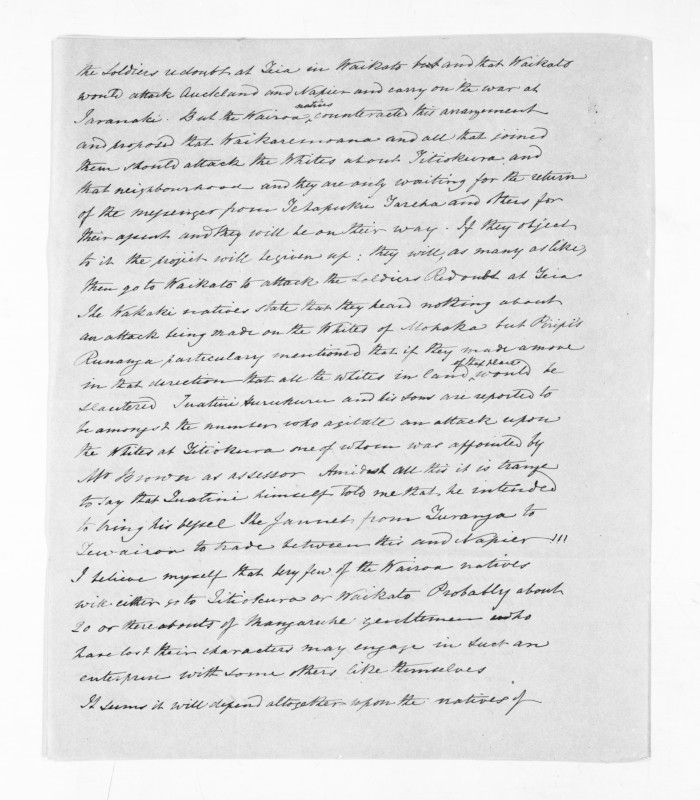 the Soldiers redoubt at Teia in Waikato but and that Waikato
would attack Auckland and Napier and carry on the war at
Taranaki. But the Wairoa natives counteracted this arrangement
and proposed that Waikaremoana and all that joined
them should attack the Whites about Titiokura, and
that neighbourhood and they are only waiting for the return
of the messenger from Tehapuku Tareha and others for
their assent and they will be on their way. If they object
to it the project will be given up; they will, as many as like,
then go to Waikato to attack the Soldiers Redoubt at Teia
The Wakaki natives state that they heard nothing about
an attack being made on the Whites of Mohaka but Piripi's
Runanga particulary mentioned that if they made a move
in that direction that all the whites in land of that place would be
slautered Tuatini Hurukuru and his sons are reported to
be amongst the number who agitate an attack upon
the Whites at Titiokura one of whom was appointed by
Mr Brown as assessor Amidst all this it is trange
to say that Tuatini himself told me that he intended
to bring his vessel The Jannet from Turanga to
Tewairoa to trade between this and Napier !!!
I believe myself that very few of the Wairoa natives
will either go to Titiokura or Waikato Probably about
20 or thereabouts of Mangaruhe gentlemen who
have lost their characters may engage in such an
enterprise with some others like themselves
It seems it will depend altogether upon the natives of